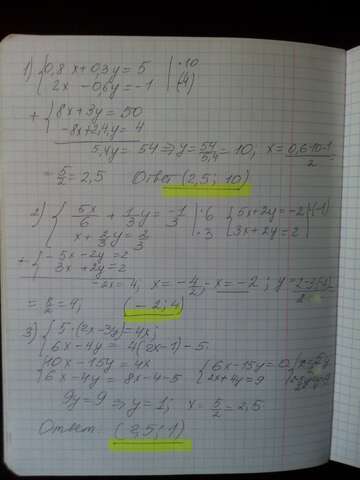 1) { 0,8x + 0,3y = 5 | ·10
2x − 0,6y = −1 | (4)
+ { 8x + 3y = 50
−8x + 2,4y = 4
5,4y = 54 ⇒ y = 54/5,4 = 10, x = 0,6·10−1/2
= 5/2 = 2,5 Ответ (2,5; 10)
2) { 5x/6 + 1/3y = −1/3 | ·6 { 5x + 2y = −2 | (−1)
x + 2/3y = 2/3 | ·3 3x + 2y = 2
+ { −5x − 2y = 2
3x + 2y = 2
−2x = 4, x = −4/2, x = −2; y =
(−2; 4)
3) { 5·(2x−3y) = 4x;
6x − 4y = 4(2x−1) − 5
10x − 15y = 4x { 6x − 15y = 0
6x − 4y = 8x − 4 − 5 2x + 4y = 9
9y = 9 ⇒ y = 1; x = 5/2 = 2,5.
Ответ (2,5; 1)